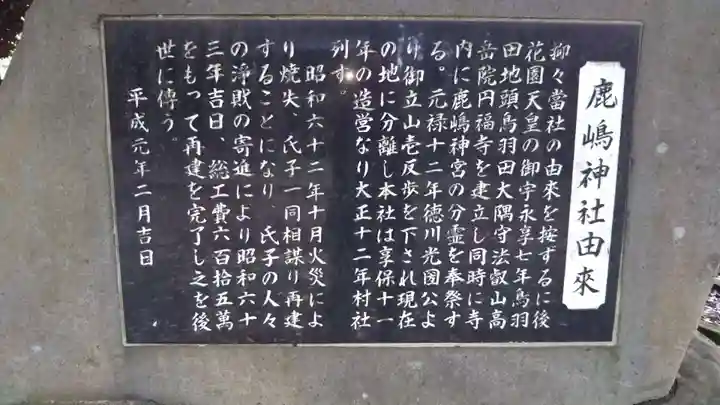 鹿嶋神社由來
抑々當社の由來を按ずるに後
花園天皇の御宇永享七年鳥羽
田地頭鳥羽田大隅守法叡山高
岳院円福寺を建立し同時に寺
内に鹿嶋神宮の分霊を奉祭す
る。元禄十二年徳川光圀公よ
り御立山壱反歩を下され現在
の地に分離し本社は享保十一
年の造営なり大正十二年村社
列す。
昭和六十二年十月火災によ
り焼失、氏子一同相謀り再建
することになり、氏子の人々
の浄財の寄進により昭和六十
三年吉日、総工費六百拾五萬
をもって再建を完了し之を後
世に傳う。
平成元年二月吉日